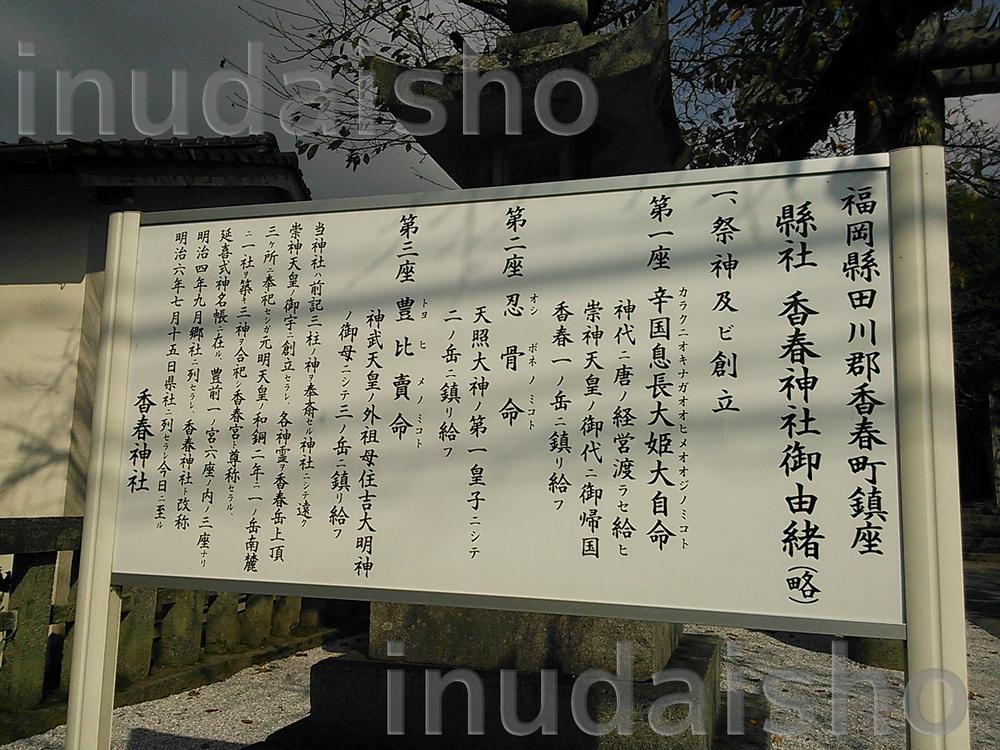 inudaisho
福岡縣田川郡香春町鎮座
縣社 香春神社御由緒(略)
一、祭神及ビ創立
第一座 辛国息長大姫大自命
カラクニオキナガオオヒメオオジノミコト
神代ニ唐ノ経営渡ラセ給ヒ
崇神天皇ノ御代ニ御帰国
香春一ノ岳ニ鎮リ給フ
第二座 忍骨命
オシボネノミコト
天照大神ノ第一皇子ニシテ
二ノ岳ニ鎮リ給フ
第三座 豊比賣命
トヨヒメノミコト
神武天皇ノ外祖母住吉大明神
ノ御母ニシテ三ノ岳ニ鎮リ給フ
当神社ハ前記三柱ノ神ヲ奉斎セル神社ニシテ遠ク
崇神天皇ノ御宇ニ創立セラレ、各神霊ヲ香春岳上頂
三ヶ所ニ奉祀セシガ元明天皇ノ和銅二年ニ一ノ岳南麓
ニ一社ヲ築キ三神ヲ合祀シ香春宮ト尊称セラル、
延喜式神名帳ニ在ル、豊前一ノ宮六座ノ内ノ三座ナリ
明治四年九月郷社ニ列セラレ、香春神社ト改称
明治六年七月十五日県社ニ列セラレ今日ニ至ル
香春神社
inudaisho